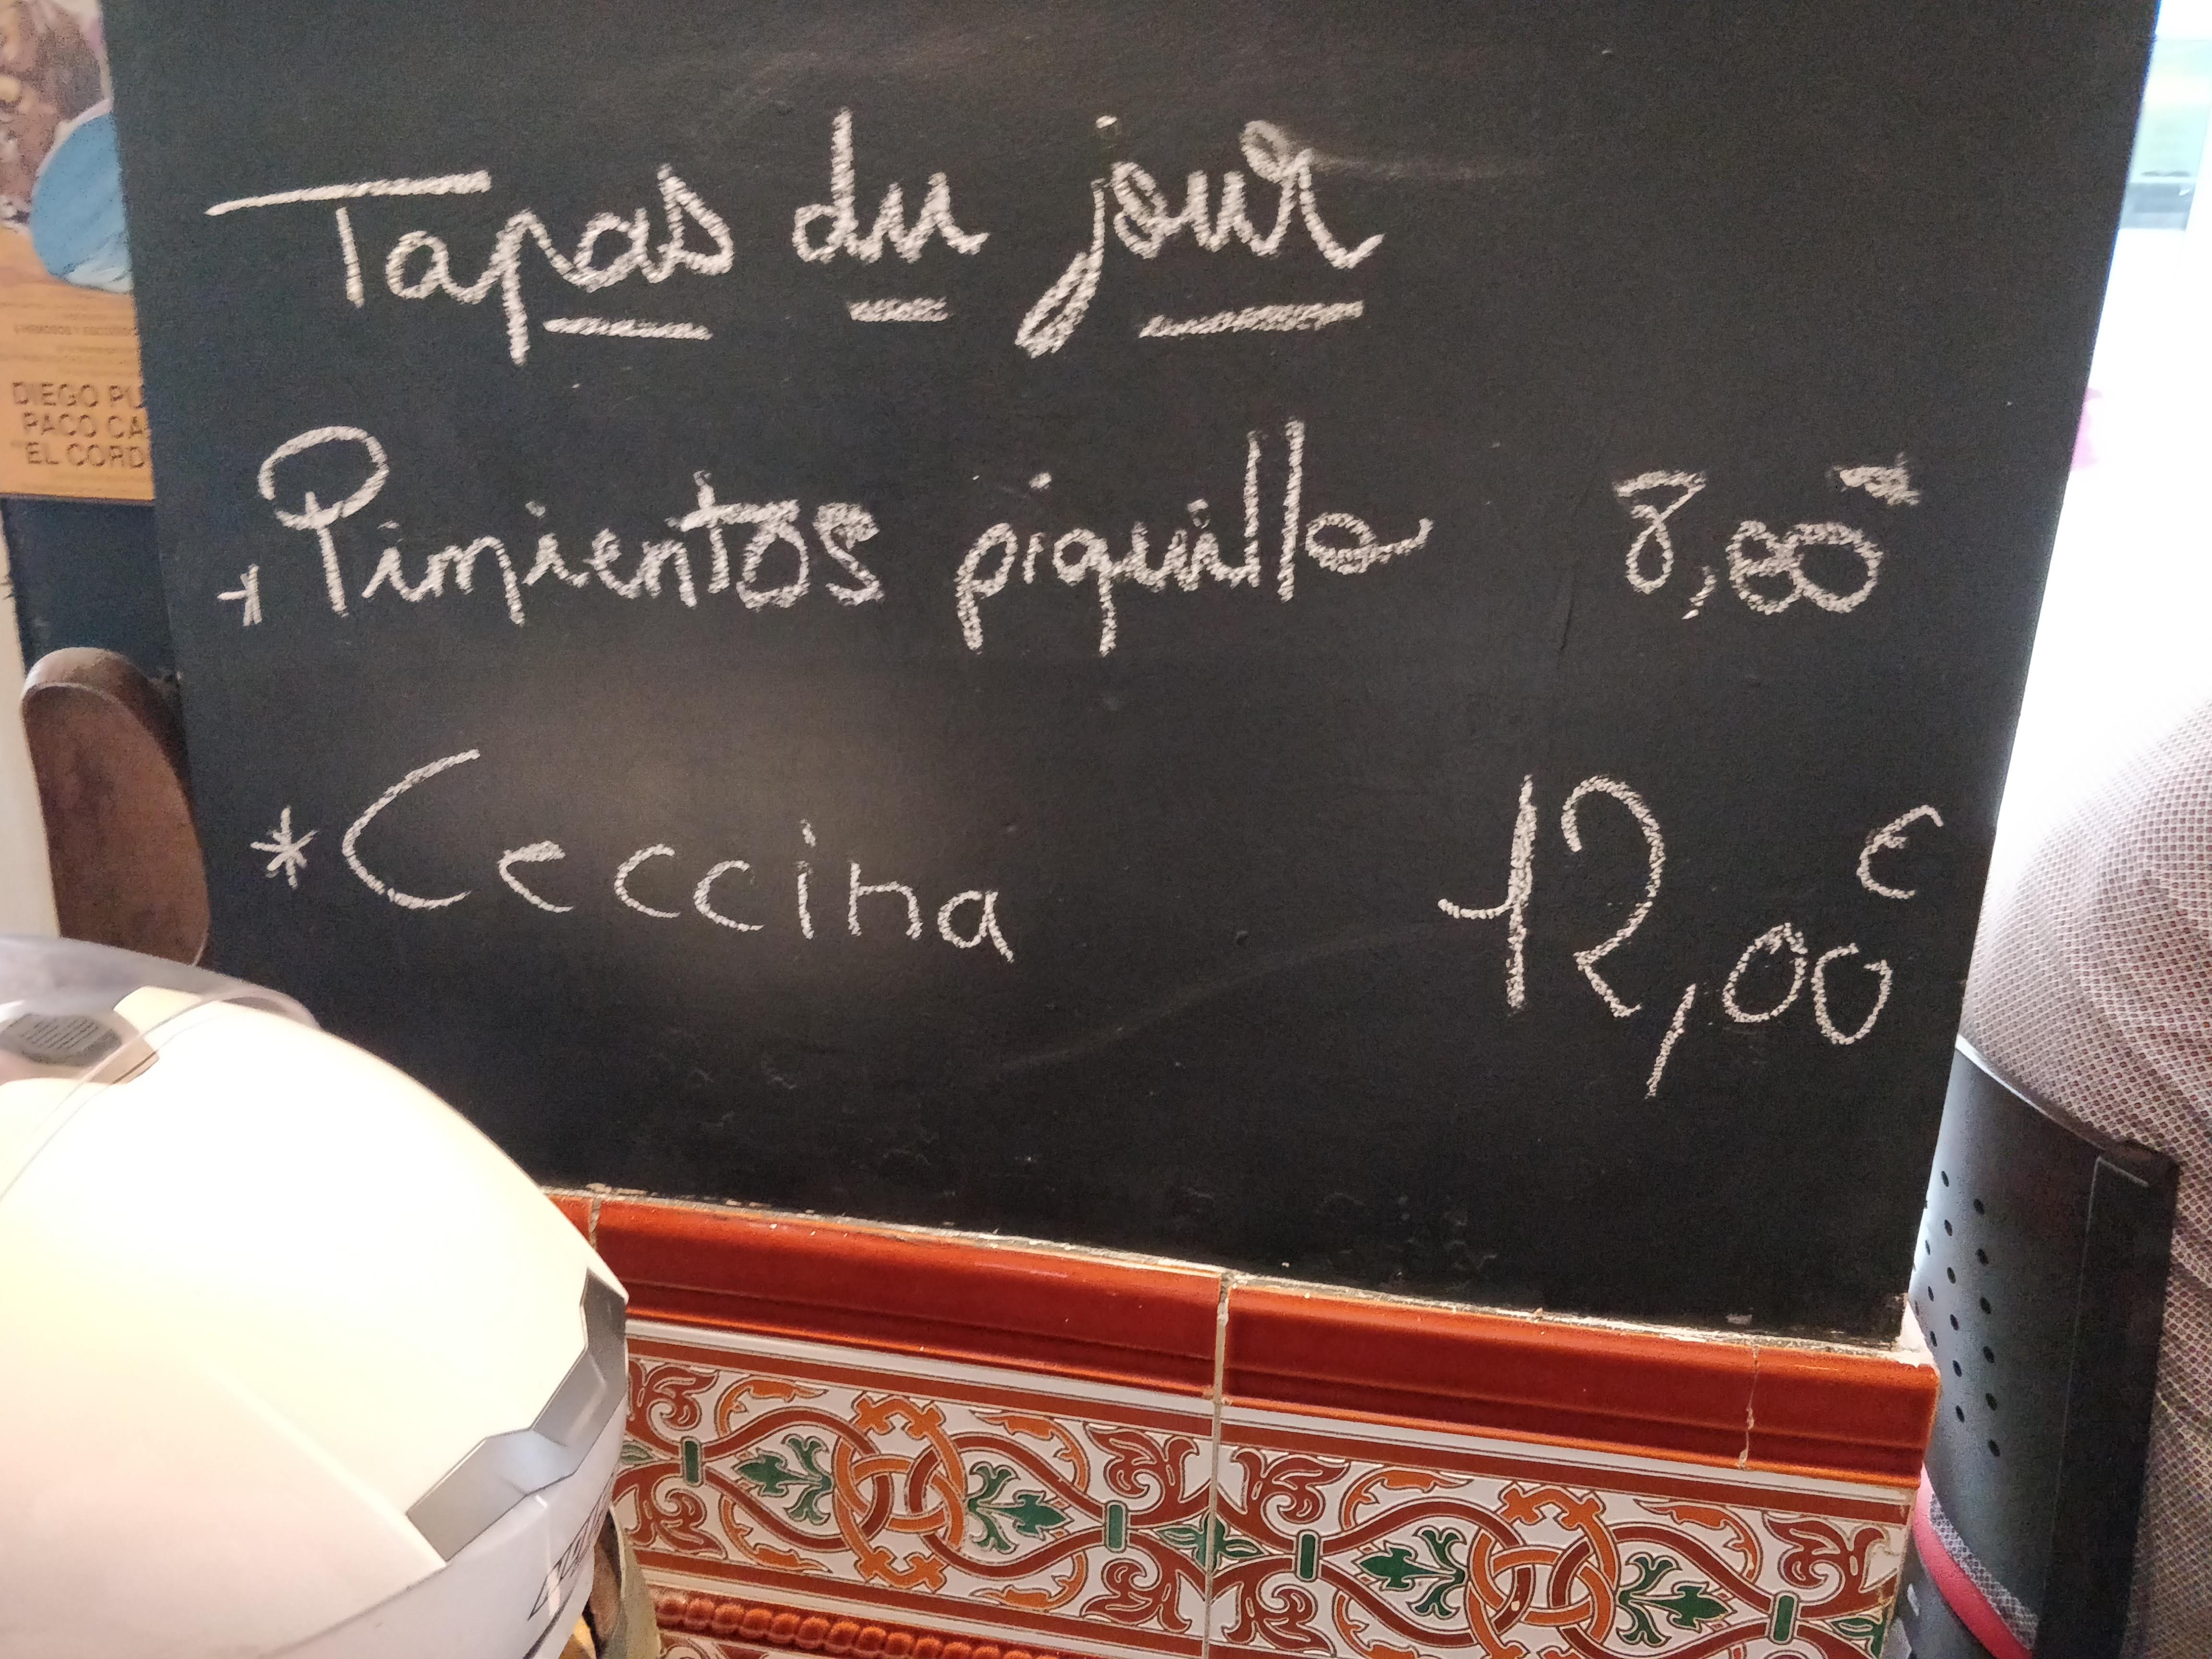 Tapas du jour
* Pimientos piquillo 8,00€
* Ceccina 12,00€
DIEGO PU
PACO CA
"EL CORD